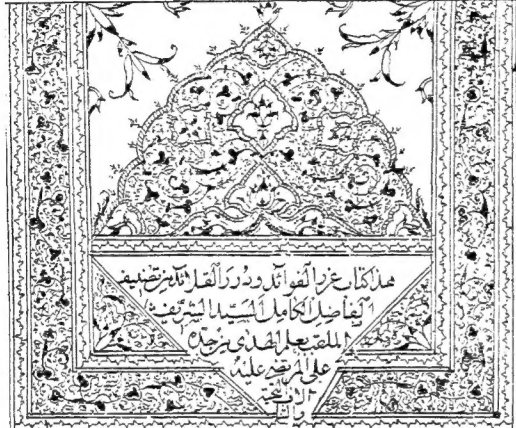 هذا كتاب غرر الفوائد ودرر القلائد من تصنيف
الفاضل الكامل السيد الشريف
الملقب بعلم الهدى من جده
علي المرتضى عليه
الاف التحية
والثناء